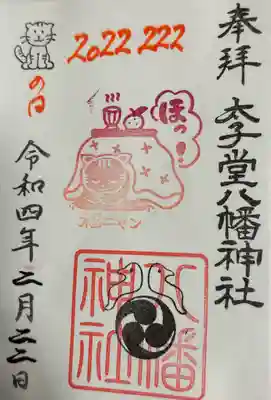 奉拝
太子堂八幡神社
2022 222
の日
ほっ!
八幡
神社
令和四年二月二二日